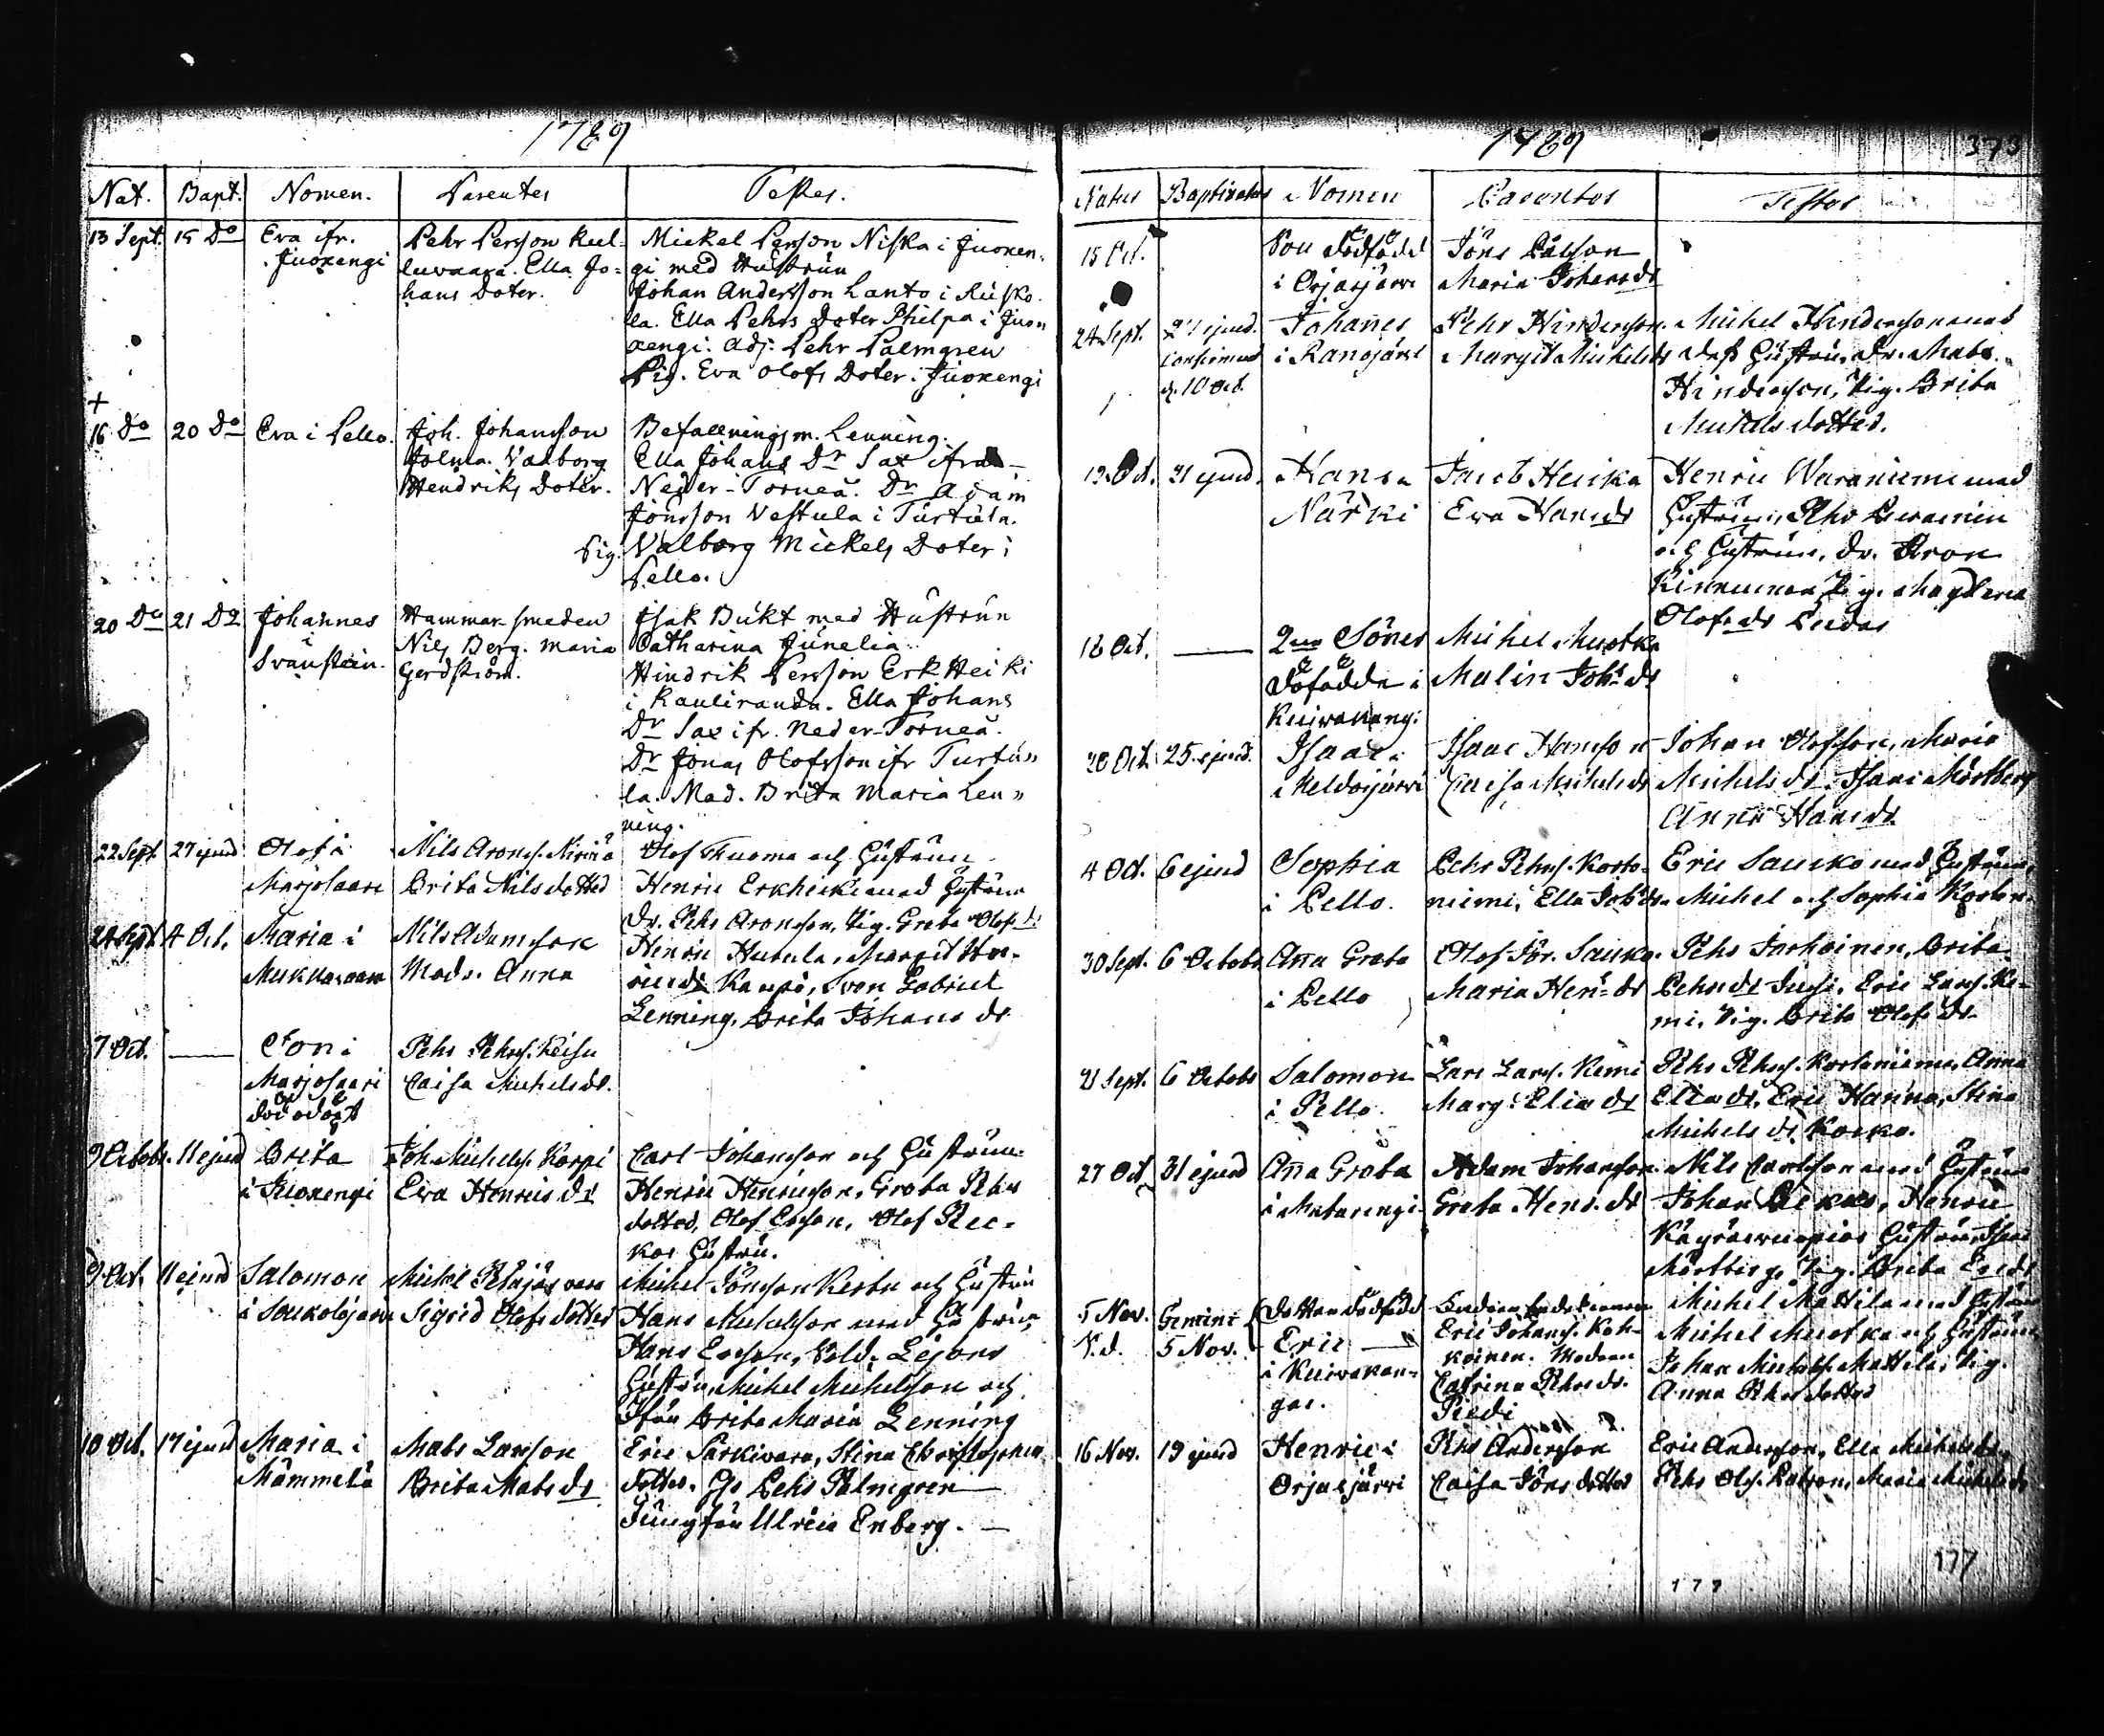 1789
Nat. Bapt. Nomen. Parentes Testes.
13 Sept. 15 Do Eva ifr. Juoxengi
Pehr Persson Kuluvaara. Ella Johans Doter.
Mickel Persson Niska i Juoxen-
gi med Hustrun
Johan Andersson Lanto i Rusko-
la. Ella Pehrs Doter Philpa i Juo-
xengi. Adj. Pehr Palmgren
Pig. Eva Olofs Doter i Juoxengi
+
16 Do 20 Do Eva i Pello.
Joh. Johansson
Jolma. Valborg
Hendriks Doter.
Befallningsm. Lenning.
Ella Johans Dr Sax ifrån
Neder-Torneå. Dr Adam
Jönsson Vestula i Turtula.
Pig. Valborg Mickels Doter i
Pello.
20 Do 21 Do Johannes
i
Svanstein.
Hammarsmeden
Nils Berg. Maria
Gerdström.
Isak Bukt med Hustrun
Catharina Junelia
Hindrik Persson Erkheiki
i Kauliranda. Ella Johans
Dr Sax ifr. Neder-Torneå.
Dr Jonas Olofsson ifr Turtu-
la. Mad. Brita Maria Len-
ning.
22 Sept. 27 ejusd Olof i
Marjosaari
Nils Arons. Niemi
Brita Nilsdotter
Olof Tuoma och Hustrun
Henric Erkheiki med Hustrun
Dr. Pehr Aronsson, Pig. Greta Olofs ds
24 Sept 4 Oct. Maria i
Mukkasaara
Nils Adamsson
Modr. Anna
Henric Hutula, Margit Hen-
rics ds Kaupi, Sven Gabriel
Lenning, Brita Johans ds
7 Oct. — Son i
Marjosaari
dödödöpt
Pehr Pehrs. Keisu
Caisa Michels ds.
9 Octobr. 11 ejusd Brita
i Juoxengi
Joh. Michels. Karpi
Eva Henrics ds
Carl Johansson och Hustrun
Henric Henricsson, Greta Pehrs
dotter, Olof Ersson, Olof Pec-
kos Hustru.
9 Oct. 11 ejusd Salomon
i Soukolojärvi
Michel Pelajäsvara
Sigrid Olofs dotter
Michel Jönsson Kertu och Hustru
Hans Michelsson med Hustru
Hans Ersson, Sold. Lejons
Hustru, Michel Michelsson och
Jfru Brita Maria Lenning
10 Oct. 17 ejusd Maria i
Mämmilä
Mats Larsson
Brita Mats ds
Eric Särkivara, Stina Christophers
dotter. Hr Pehr Palmgren
Jungfru Ulrica Enberg. —
1789 373
Natus Baptizatus Nomen Parentes Testes
15 Oct. Son dödfödd
i Orjasjärvi
Jöns Pålsson
Maria Johans ds
24 Sept. 27 ejusd.
Confirmed
d. 10 Oct.
Johannes
i Ranojärvi
Pehr Hindersson
Margit Michels ds
Michel Hindersson med
dess Hustru, Dr. Mats
Hindersson, Pig. Brita
Michels dotter.
19 Oct. 31 ejusd. Hans i
Närki
Jacob Heicka
Eva Hans ds
Henric Waraniemi med
Hustrun, Pehr
och Hustrun, Dr. Aron
Kinnunen, Pig. Magdlena
Olofs ds
18 Oct. — 2ne Söner
döfödde i
Kuivakangi
Michel Muotka
Malin Joh. ds
20 Oct. 25 ejusd. Isaac i
Meldosjärvi
Isaac Hansson
Caisa Michels ds
Johan Olofsson, Maria
Michels ds, Isaac Mörtberg
Anna Hans ds
4 Oct. 6 ejusd Sophia
i Pello.
Pehr Pehrs. Korte-
niemi, Ella Joh. ds
Eric Saucko med Hustrun,
Michel och Sophia Korten.
30 Sept. 6 Octobr Aña Greta
i Pello
Olof Jör. Saucko.
Maria Hen. ds
Pehr Jarhoinen, Brita
Pehrs ds Juusi, Eric Lars. Ke-
mi, Pig. Brita Olofs ds
21 Sept. 6 Octobr Salomon
i Pello.
Lars Lars. Kemi
Marg. Elia ds
Pehr Pehrs. Korteniemi, Anna
Elia ds, Eric Hannu, Stina
Michels ds Kocko.
27 Oct 31 ejusd Aña Greta
i Matarengi
Adam Johansson
Greta Hens. ds
Nils Carlsson med Hustrun
Johan Pekas, Henric
Hustru, Isaac
Mörtberg, Pig. Brita Ers ds
5 Nov. Gemini { dotter dödfödd
N.d. 5 Nov. Eric —
i Kuivakan-
gas.
Eric Johans. Koh-
koinen. Modren
Catrina Pehrs ds.
Piedi
Michel Mattila med Hustru
Michel Muotka och Hustrun
Johan Michels. Mattila, Pig.
Anna Pehrs dotter
16 Nov. 19 ejusd Henric i
Orjasjärvi
Pehr Andersson
Caisa Jöns dotter
Eric Andersson, Ella Michels ds
Pehr Ols. Pålsson, Maria Michels ds
177
177